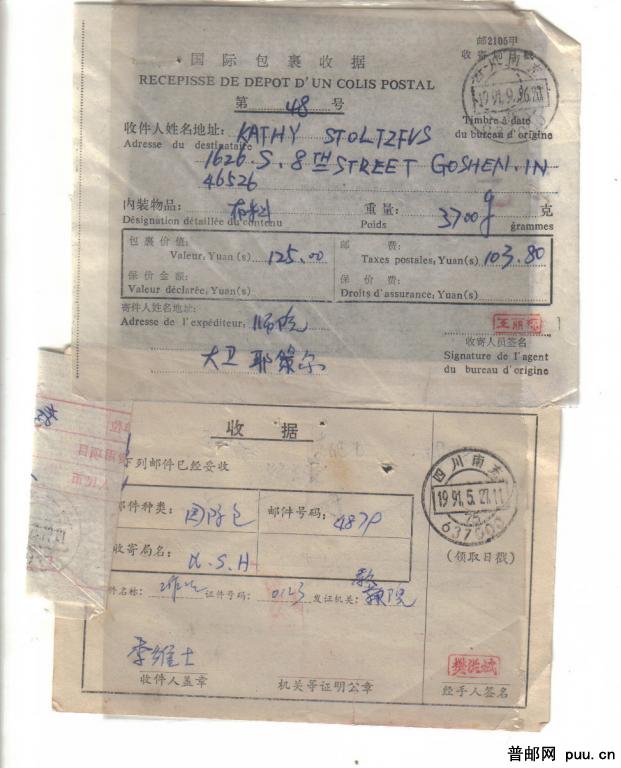 邮2105甲
国际包裹收据
收寄包裹号数
RECEPISSE DE DÉPOT D'UN COLIS POSTAL
第 48 号
Timbre à date
du bureau d'origine
收件人姓名地址: KATHY STOLTZFUS
Adresse du destinataire
1626. S. 8TH STREET GOSHEN. IN
46526
内装物品: 布料 重量: 3700g 克
Désignation détaillée du contenu Poids grammes
包裹价值: 邮 费:
Valeur, Yuan(s) 125.00 Taxes postales, Yuan(s) 103.80
保价金额: 保 价 费:
Valeur déclarée, Yuan(s) Droits d'assurance, Yuan(s)
寄件人姓名地址:
Adresse de l'expéditeur, 师院
收寄人员签名
大卫 耶策尔
Signature de l'agent
du bureau d'origine
收 据
下列邮件已经妥收
四川南充
1991.5.27.11
637000
邮件种类: 国际包 邮件号码: 4879
收寄局名: U.S.A
(领取日戳)
件名称: 工作证 证件号码: 0123 发证机关:
李维士
樊洪斌
收件人盖章 机关等证明公章 经手人签名
普邮网 puu.cn